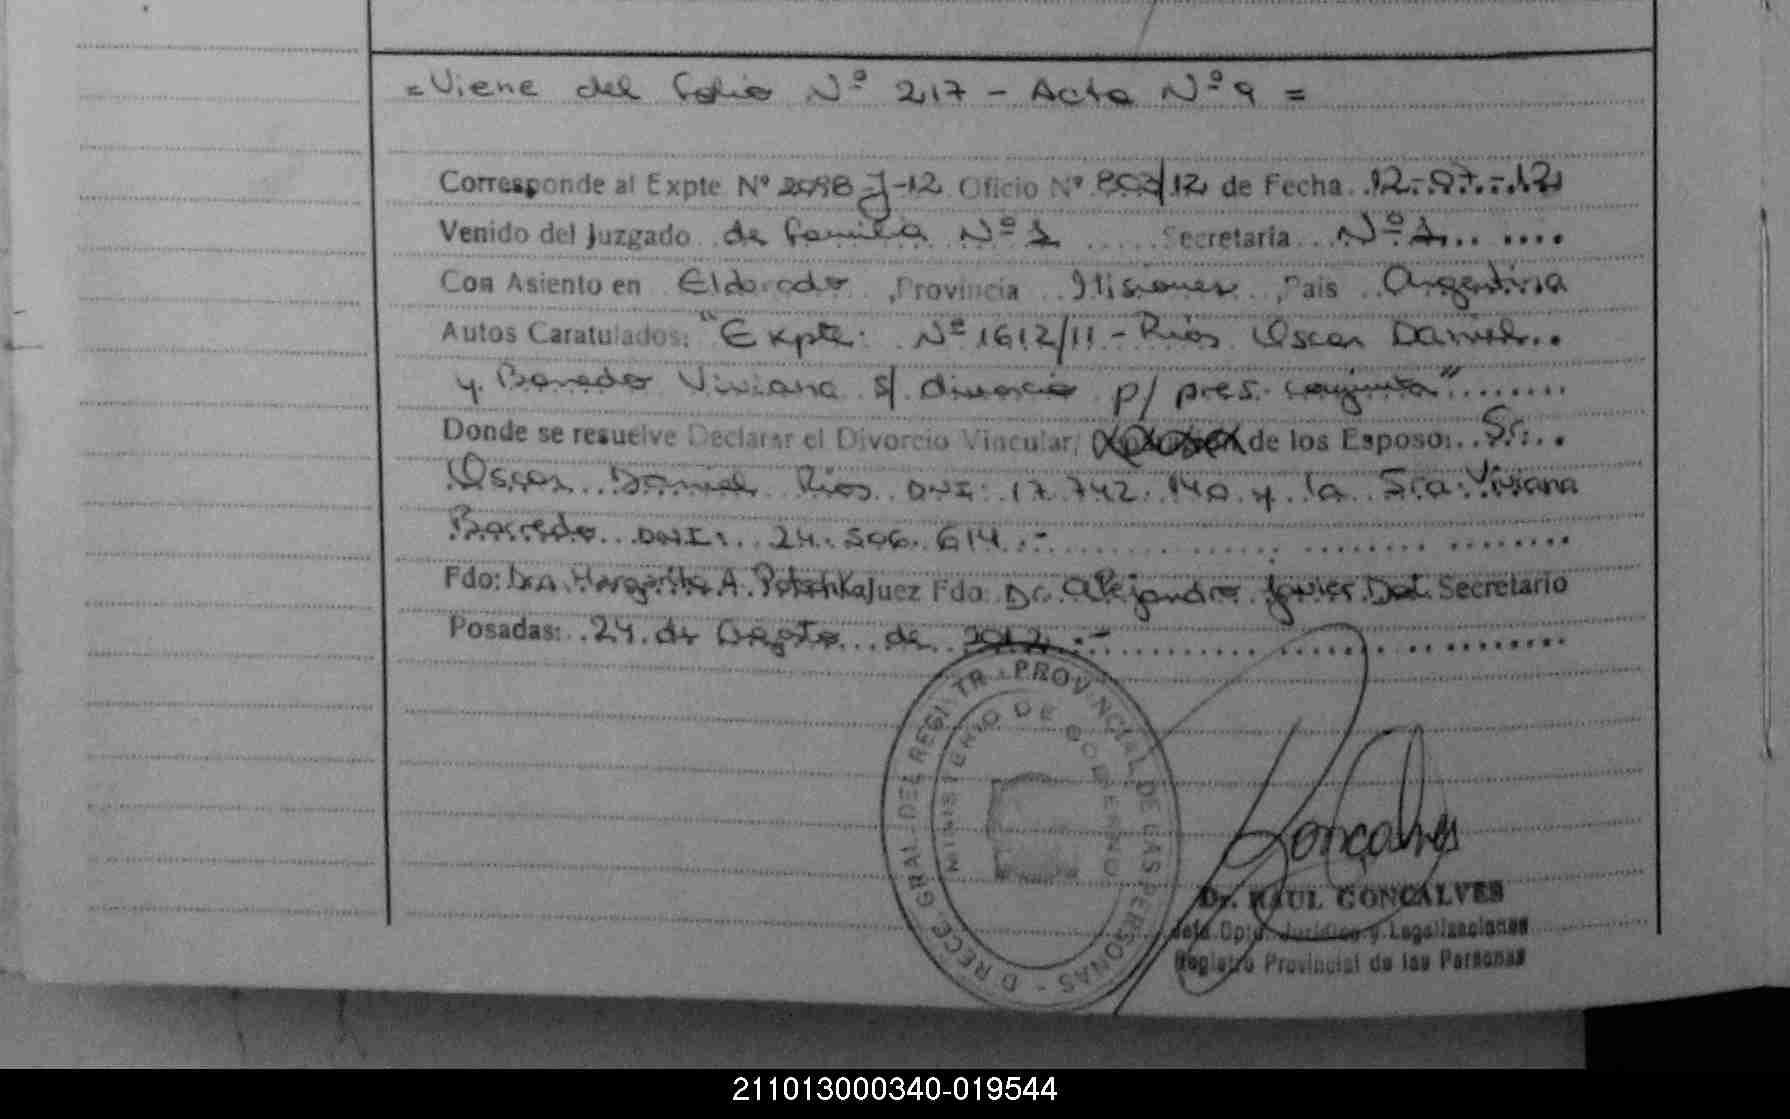 = Viene del folio Nº 217 - Acta Nº 9 =
Corresponde al Expte Nº 2098-J-12 Oficio Nº 803/12 de Fecha 12-07-12
Venido del Juzgado de familia Nº 1 Secretaria Nº 1
Con Asiento en Eldorado, Provincia Misiones, Pais Argentina
Autos Caratulados: "Expte. Nº 1612/11 - Rios Oscar Daniel
y Barredo Viviana s/ divorcio p/ pres. conjunta"
Donde se resuelve Declarar el Divorcio Vincular, de los Esposo: Sr.
Oscar Daniel Rios DNI: 17.742.140 y la Sra: Viviana
Barredo DNI: 24.506.614.-
Fdo: Dra. Margarita A. Potschka Juez Fdo: Dr. Alejandro Javier Secretario
Posadas: 24 de Agosto de 2012.-
DIRECC. GRAL. DEL REGISTR. PROVINCIAL DE LAS PERSONAS -
MINISTERIO DE GOBIERNO
Goncalves
Dr. RAUL GONCALVES
Jefe Dpto. Jurídico y Legalizaciones
Registro Provincial de las Personas
211013000340-019544